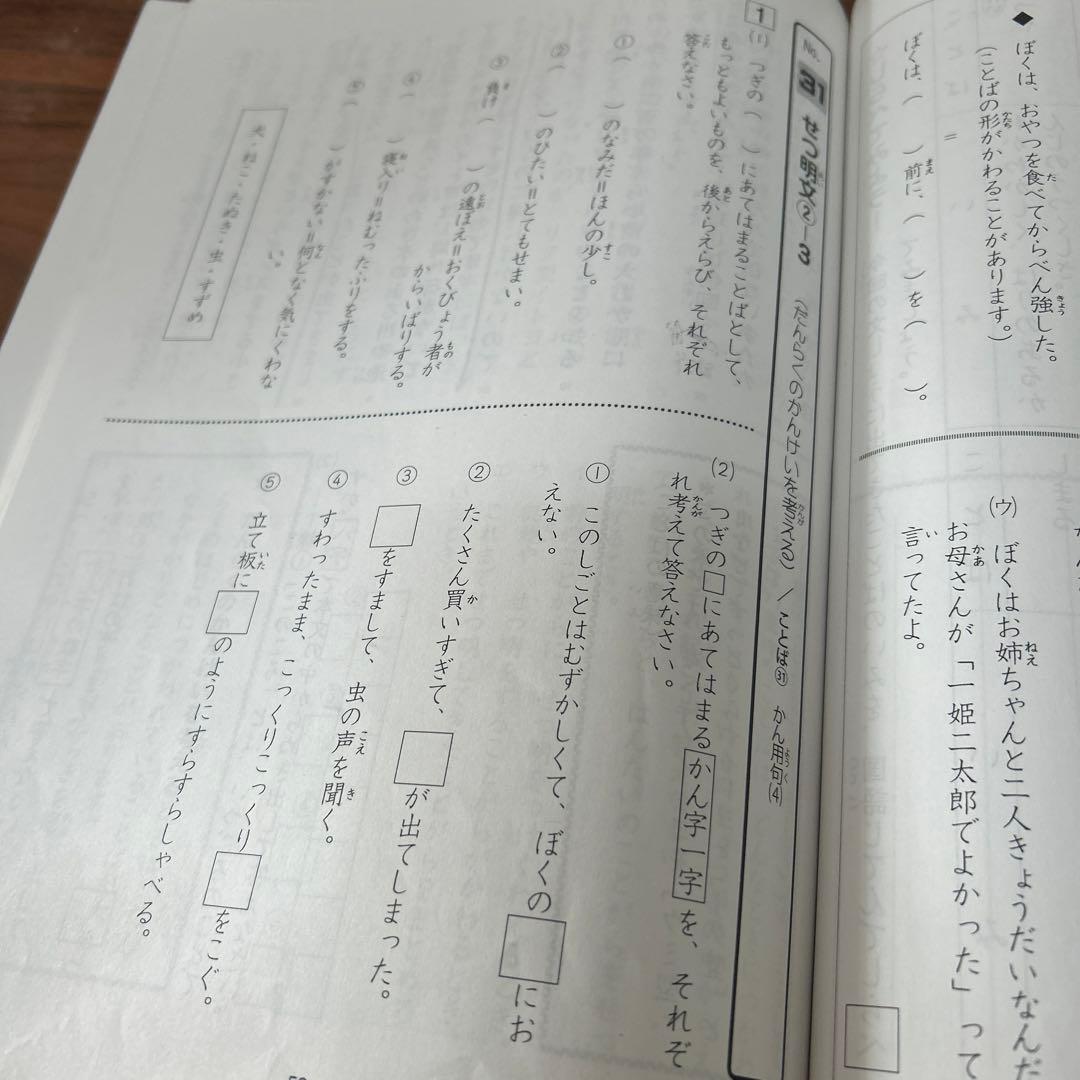 ◆ ぼくは、おやつを食べてからべん強した。
(ことばの形がかわることがあります。)
=
ぼくは、( )前に、( )を( )。
(ウ) ぼくはお姉ちゃんと二人きょうだいなんだ
お母さんが「一姫二太郎でよかった」って
言ってたよ。
No. 31 せつ明文②―3 (だんらくのかんけいを考える) / ことば㉛ かん用句(4)
1
(1) つぎの( )にあてはまることばとして、
もっともよいものを、後からえらび、それぞれ
答えなさい。
① ( )のなみだ=ほんの少し。
② ( )のひたい=とてもせまい。
③ 負け( )の遠ぼえ=おくびょう者が
からいばりする。
④ ( )寝入り=ねむったふりをする。
⑤ ( )がすかない=何となく気にくわな
い。
犬・ねこ・たぬき・虫・すずめ
(2) つぎの□にあてはまるかん字一字を、それぞ
れ考えて答えなさい。
① このしごとはむずかしくて、ぼくの□にお
えない。
② たくさん買いすぎて、□が出てしまった。
③ □をすまして、虫の声を聞く。
④ すわったまま、こっくりこっくり□をこぐ。
⑤ 立て板に□のようにすらすらしゃべる。